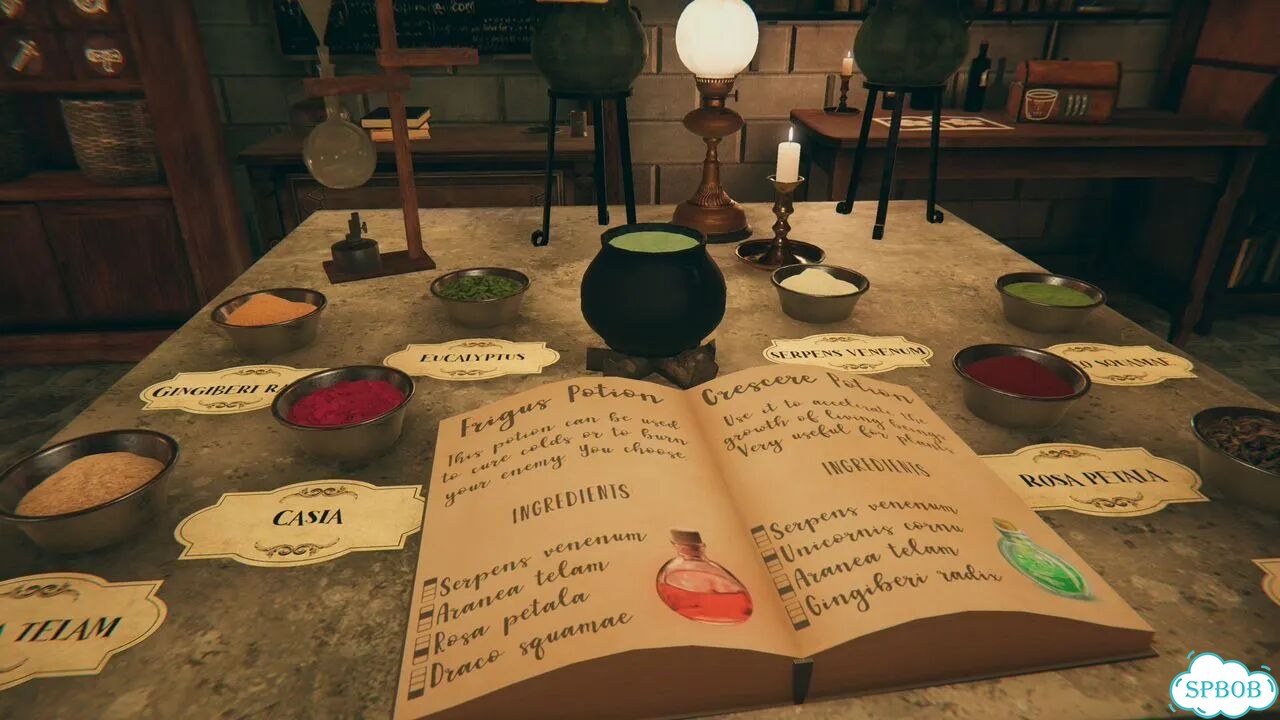 EUCALYPTUS
SERPENS VENENUM
GINGIBERI
SQUAMAE
CASIA
ROSA PETALA
TELAM
Frigus Potion
This potion can be used
to cure colds or to burn
your enemy. You choose
INGREDIENTS
Serpens venenum
Aranea telam
Rosa petala
Draco squamae
Crescere Potion
Use it to accelerate the
growth of living beings
Very useful for plants
INGREDIENTS
Serpens venenum
Unicornis cornu
Aranea telam
Gingiberi radix
SPBOB